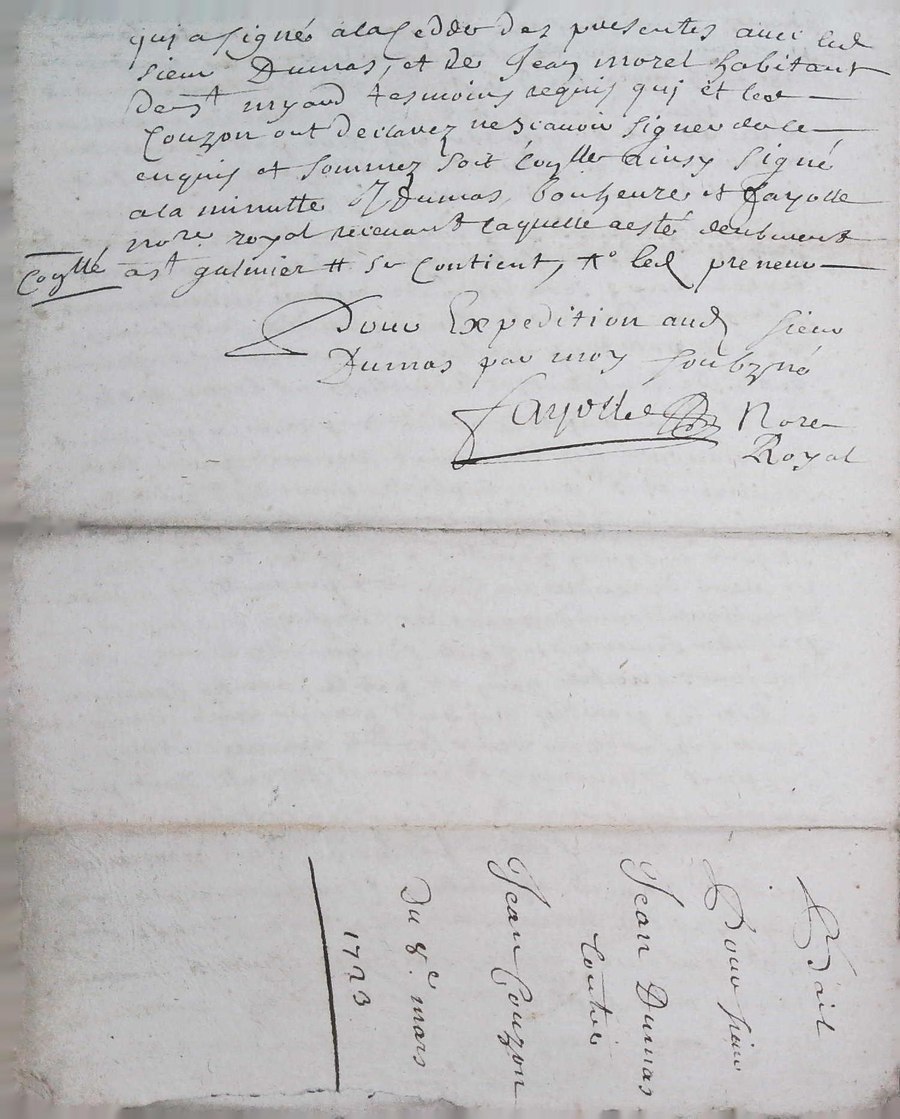 qui a signé a la Cedde des presentes avec led
sieur Dumas, et de Jean morel habitant
de st myard tesmoins requis qui et led
Couzon ont declarez ne scavoir signer de ce
enquis et sommez soit Coyllé ainsy signé
a la minutte Dumas, bonheure et fayolle
nore royal recevant laquelle a esté deubment
Coyllé
a st galmier # se Contient, led preneur
Pour Expedition aud sieur
Dumas par moy soubzné
fayolle Nore
Royal
Bail
Pour sieur
Jean Dumas
Contre
Jean Couzon
Du 8e mars
1723